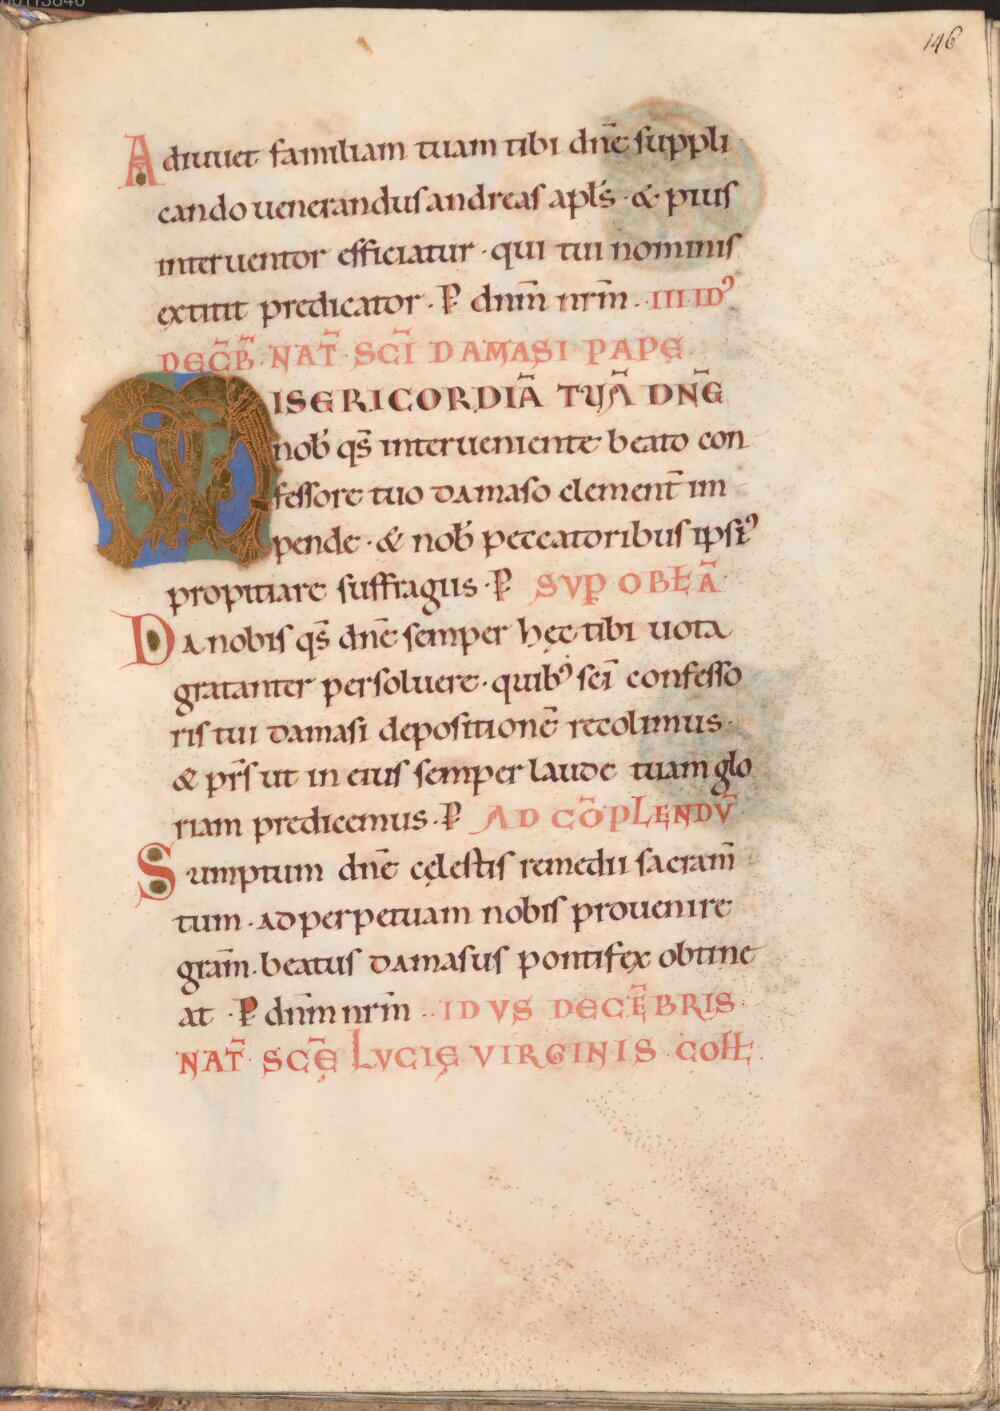 146
Adiuuet familiam tuam tibi dn̄e suppli
cando uenerandus andreas apl̄s · & pius
interuentor efficiatur · qui tui nominis
extitit predicator · P̱ dnm̄ nrm̄ . III ID⁹
DEC̄B̄ · NAT̄ · SC̄I DAMASI PAPĘ
MISERICORDIĀ TUĀ DN̄E
nob̄ qs̄ interueniente beato con
fessore tuo damaso clement̄ im
pende · & nob̄ peccatoribus ipsi⁹
propitiare suffragiis · P̱ SUP̱ OBLĀ
Da nobis qs̄ dn̄e semper hęc tibi uota
gratanter persoluere · quib⁹ sc̄i confesso
ris tui damasi depositionē recolimus ·
& pr̄s ut in eius semper laude tuam glo
riam predicemus · P̱ AD CŌPLENDŪ
Sumptum dn̄e cęlestis remedii sacram̄
tum · ad perpetuam nobis prouenire
gram̄ . beatus damasus pontifex obtine
at · P̱ dnm̄ nrm̄ . IDVS DECĒBRIS
NAT̄ · SC̄Ę LVCIĘ VIRGINIS COLŁ .